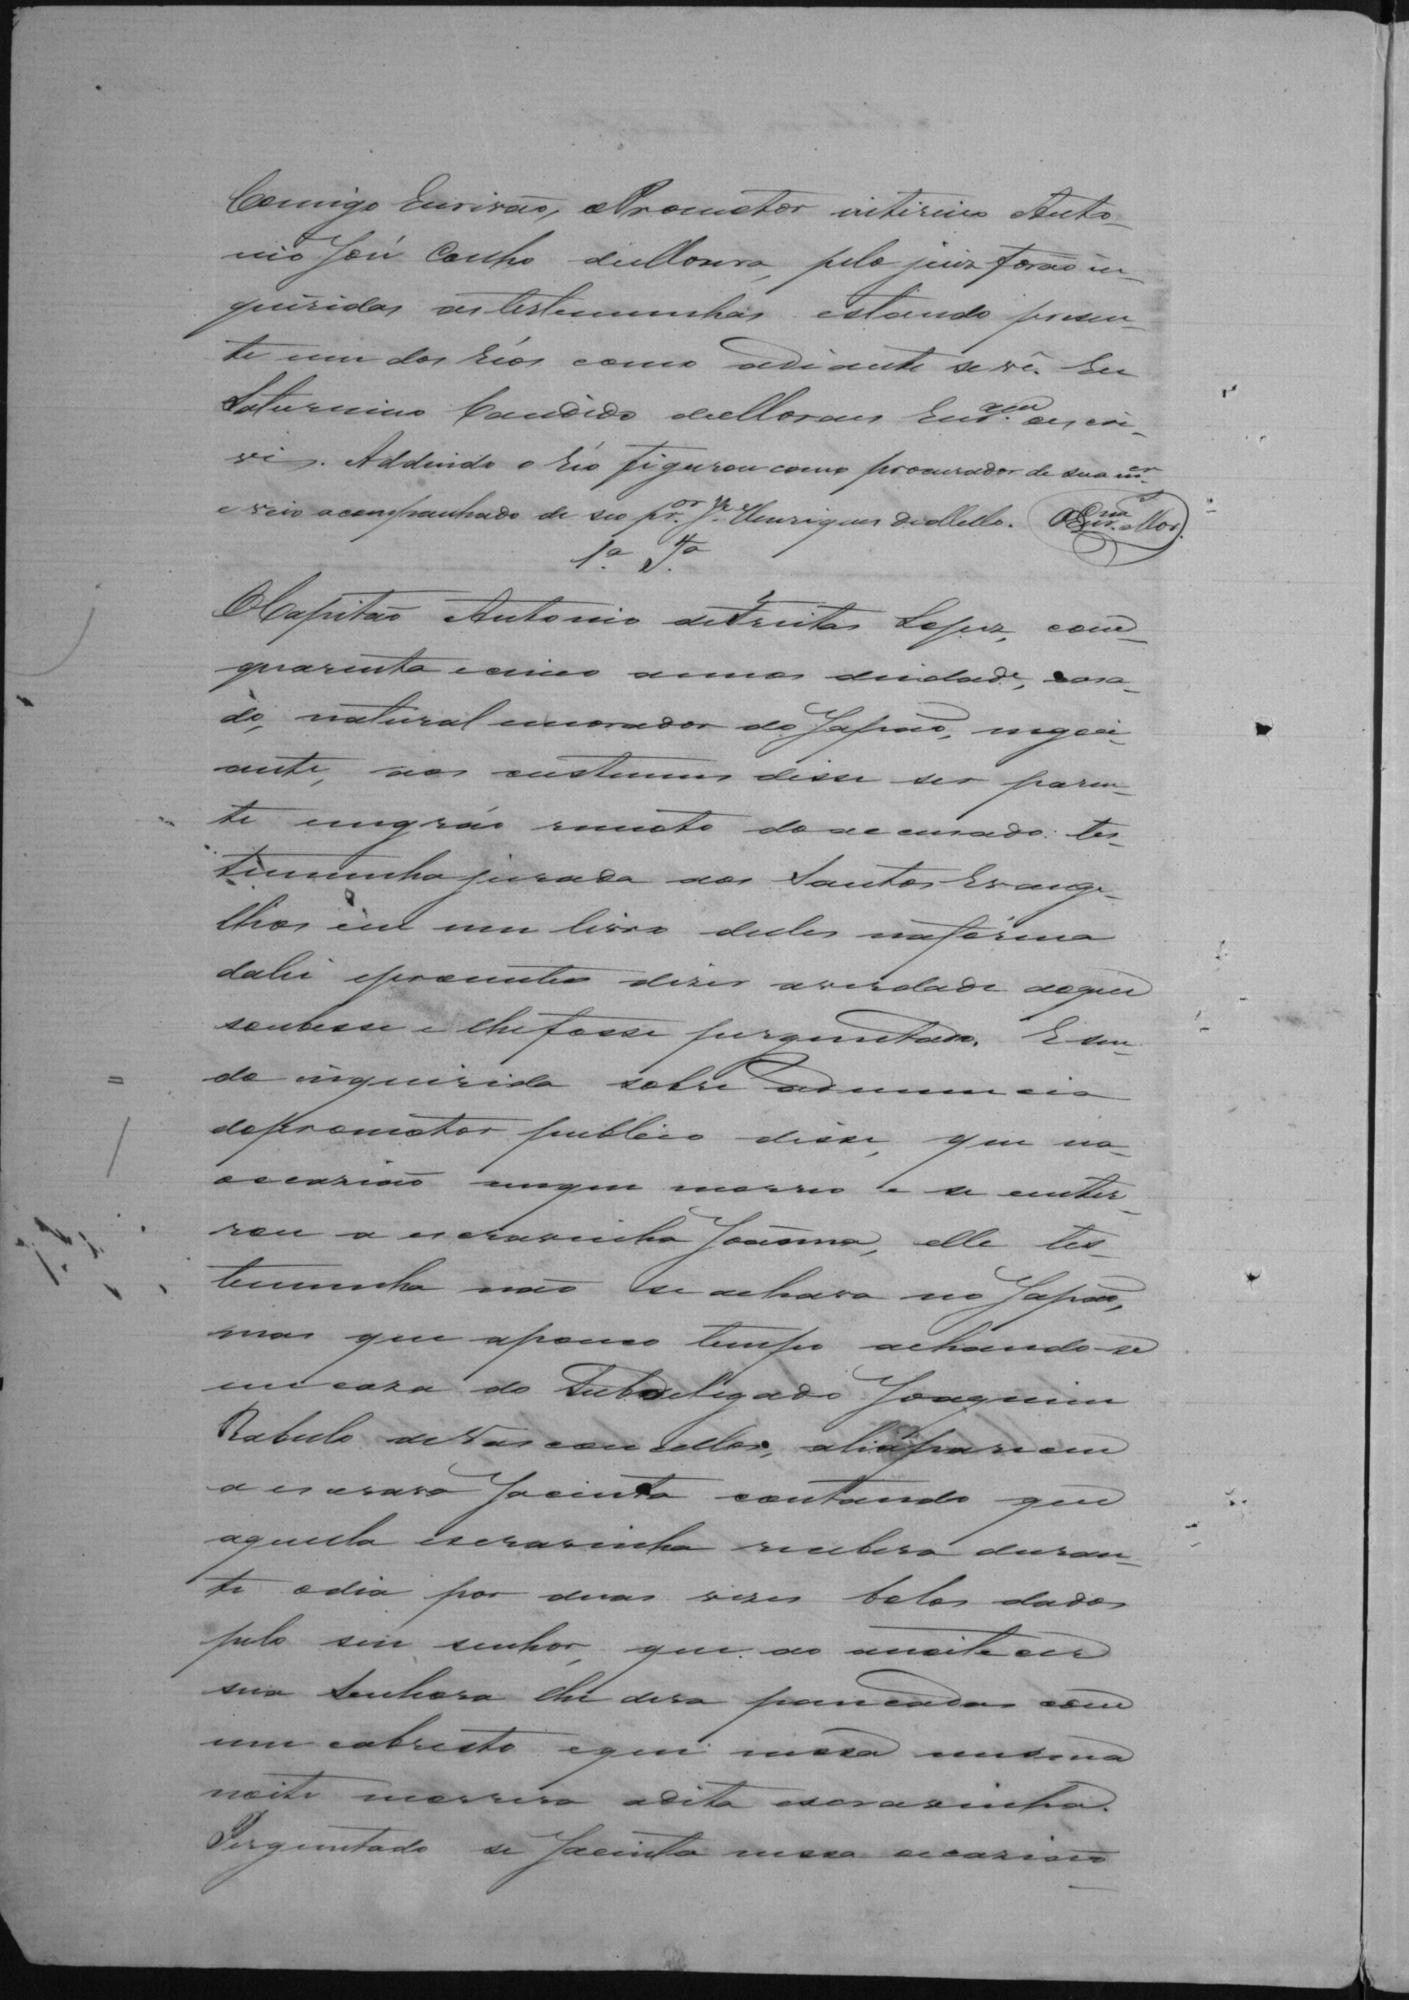 Comigo Escrivão, o Promotor interino Anto-
nio José Coelho de Moura, pelo juiz forão in-
queridas as testemunhas estando presen-
te um dos réos como adiante se vê. Eu
Saturnino Candido de Moraes Escr.am escri-
vi. Addendo o réo figurou como procurador de sua m.er
e veio acompanhado de seo pr.or J.e Henriques de Mello. O Escr.am Mor.
1.a T.a
O Capitão Antonio de Freitas Lopes, com
quarenta e cinco annos de idade, casa-
do, natural e morador do Japão, negoci-
ante, aos custumes disse ser paren-
te em gráo remoto do accusado: tes-
temunha jurada aos Santos Evange-
lhos em um livro delles na fórma
da lei e prometteo dizer a verdade do que
soubesse e lhe fosse perguntado. E sen-
do inquirida sobre a denuncia
do promotor publico disse, que na
occazião em que morreo e se enter-
rou a escravinha Joanna, elle tes-
temunha não se achava no Japão,
mas que a pouco tempo achando-se
em caza do Subdelegado Joaquim
Rabelo de Vasconcellos, ali apareceu
a escrava Jacinta contando que
aquella escravinha recebera duran-
te o dia por duas vezes bolos dados
pelo seu senhor, que ao anoitecer
sua Senhora lhe dera pancadas com
um cabresto e que nessa mesma
noite morrera a dita escravinha.
Perguntado se Jacinta nessa occazião